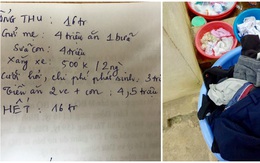 TỔNG THU: 16tr
Gửi mẹ: 4 triệu ăn 1 bữa
Sữa con: 4 triệu
Xăng xe: 500k / 2 ng
Cưới hỏi, chi phí phát sinh: 3 tr
Tiền ăn 2 vc + con: 4,5 triệu
HẾT: 16tr